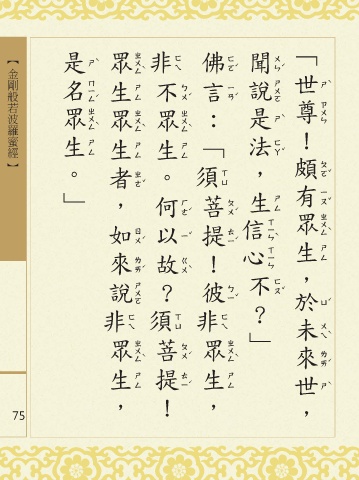 「世尊！頗有眾生，於未來世，
聞說是法，生信心不？」
佛言：「須菩提！彼非眾生，
非不眾生。何以故？須菩提！
眾生眾生者，如來說非眾生，
是名眾生。」
【金剛般若波羅蜜經】
75